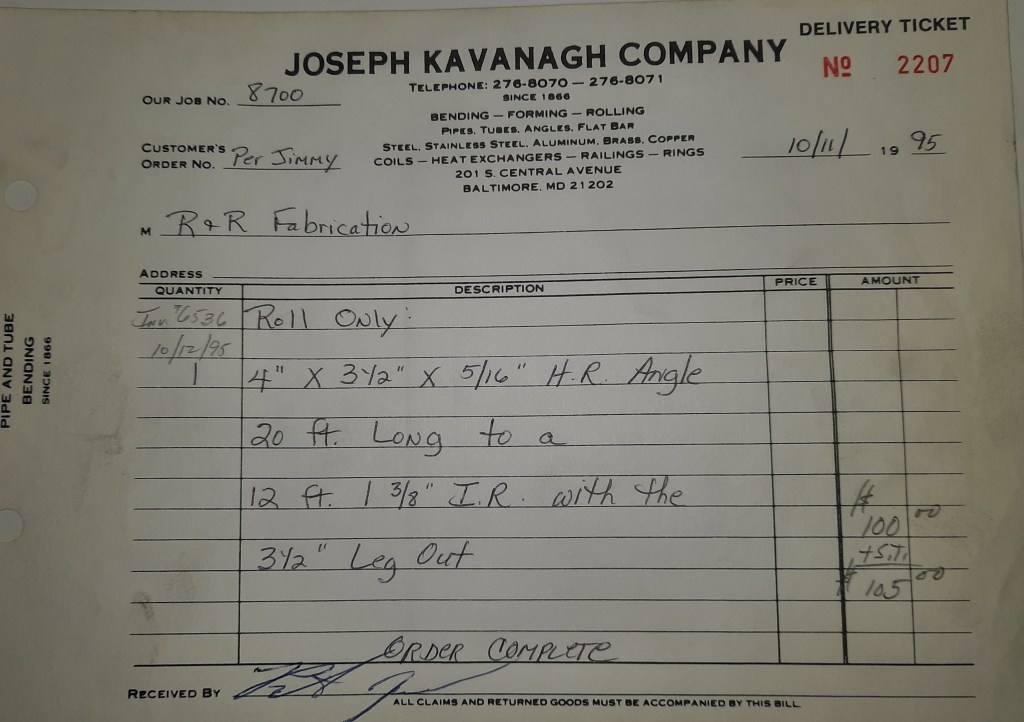 DELIVERY TICKET
JOSEPH KAVANAGH COMPANY
Nº 2207
TELEPHONE: 276-8070 — 276-8071
SINCE 1866
OUR JOB NO. 8700
BENDING — FORMING — ROLLING
PIPES, TUBES, ANGLES, FLAT BAR
STEEL, STAINLESS STEEL, ALUMINUM, BRASS, COPPER
COILS — HEAT EXCHANGERS — RAILINGS — RINGS
201 S. CENTRAL AVENUE
BALTIMORE, MD 21202
CUSTOMER'S
ORDER NO. Per Jimmy
10/11/ 19 95
M R & R Fabrication
ADDRESS
QUANTITY DESCRIPTION PRICE AMOUNT
Inv. #6536 Roll Only:
10/12/95
1 4" X 3 1/2" X 5/16" H.R. Angle
20 ft. Long to a
12 ft. 1 3/8" I.R. with the
$ 100 00
3 1/2" Leg Out
+S.T.
$ 105 00
ORDER COMPLETE
RECEIVED BY
ALL CLAIMS AND RETURNED GOODS MUST BE ACCOMPANIED BY THIS BILL.
PIPE AND TUBE
BENDING
SINCE 1866